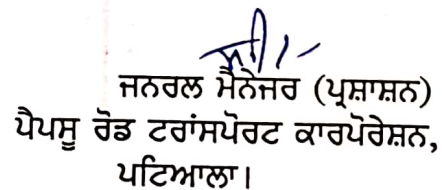 ਜਨਰਲ ਮੈਨੇਜਰ (ਪ੍ਰਸ਼ਾਸ਼ਨ)
ਪੈਪਸੂ ਰੋਡ ਟਰਾਂਸਪੋਰਟ ਕਾਰਪੋਰੇਸ਼ਨ,
ਪਟਿਆਲਾ।